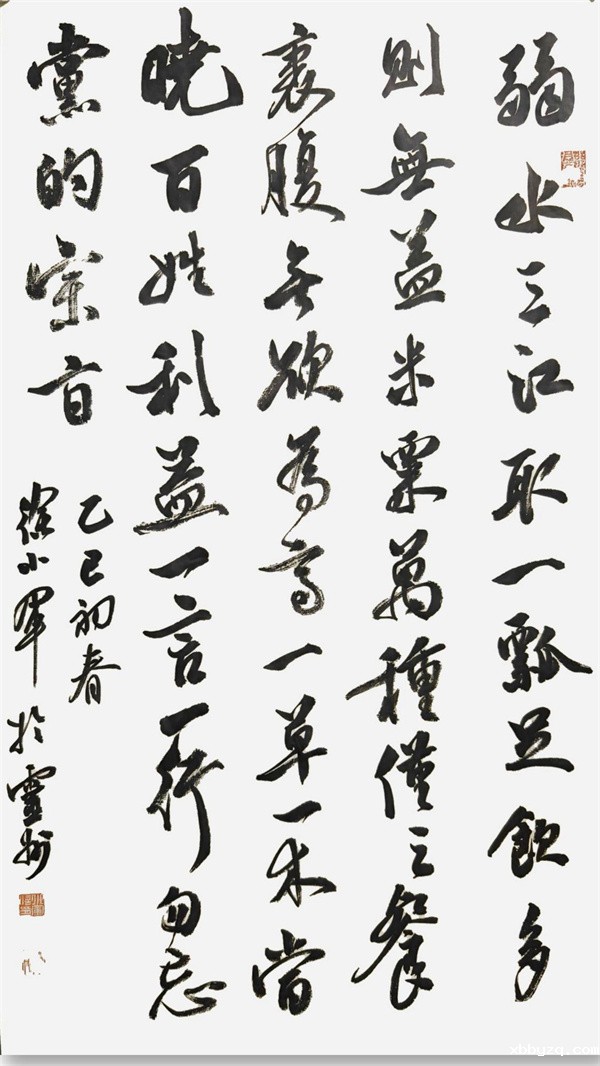 弱水三江取一瓢足飲多
則無益米粟萬種僅三餐
裹腹無欲為高一草一木當
曉百姓利益一言一行勿忘
黨的宗旨
乙巳初春
徐小軍於靈州
xbbyzq.com